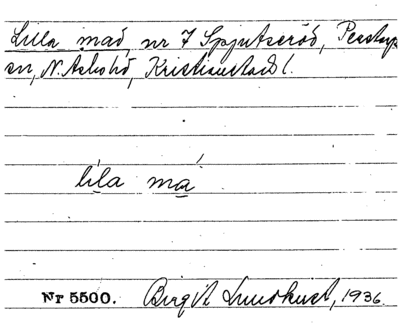 Lilla mad, nr 7 Spjutseröd, Perstorps
sn, N. Åsbo hd, Kristianstads l.
lila má
Nr 5500. Birgit Lundkvist, 1936.